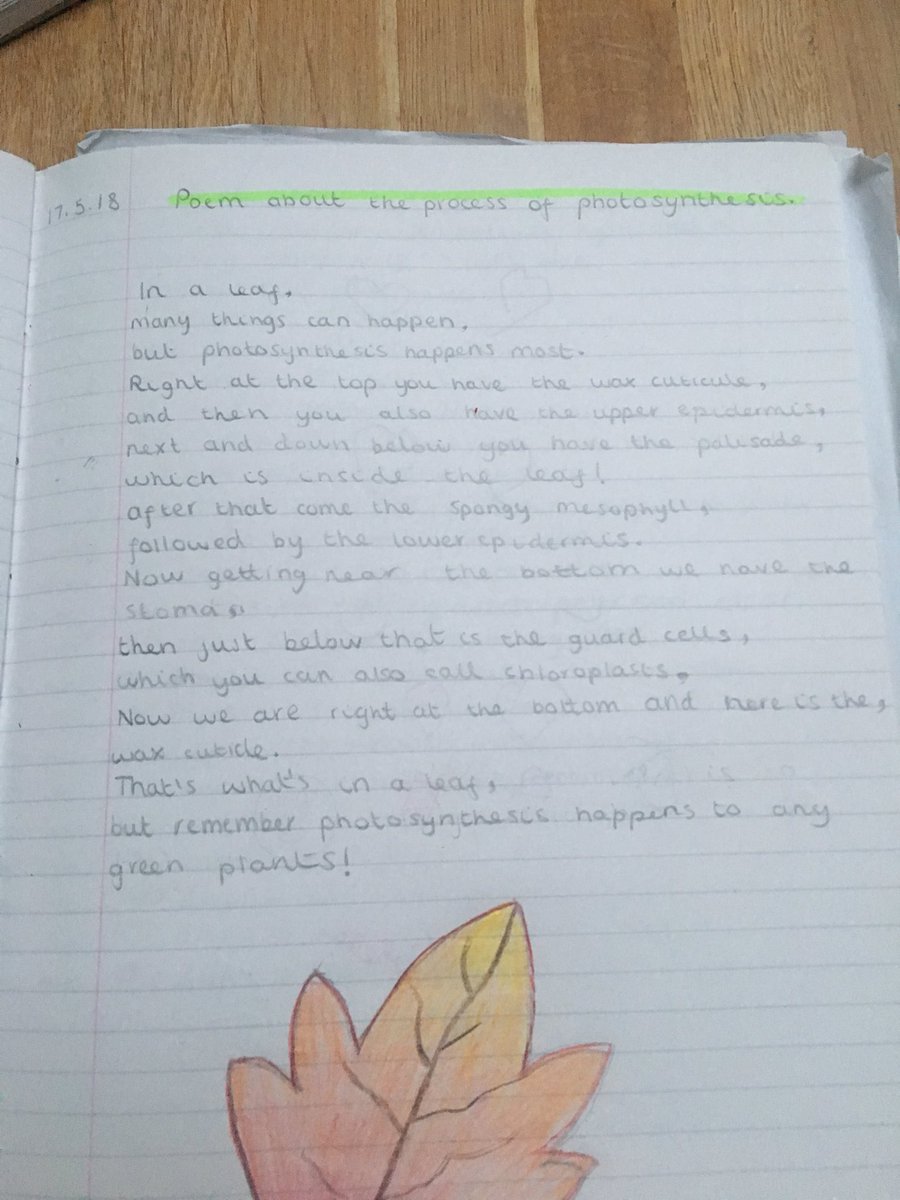 17.5.18 Poem about the process of photosynthesis.
In a leaf,
many things can happen,
but photosynthesis happens most.
Right at the top you have the wax cuticule,
and then you also have the upper epidermis,
next and down below you have the palisade,
which is inside the leaf!
after that come the spongy mesophyll,
followed by the lower epidermis.
Now getting near the bottom we have the
stoma,
then just below that is the guard cells,
which you can also call chloroplasts,
Now we are right at the bottom and here is the,
wax cuticle.
That's what's in a leaf,
but remember photosynthesis happens to any
green plants!